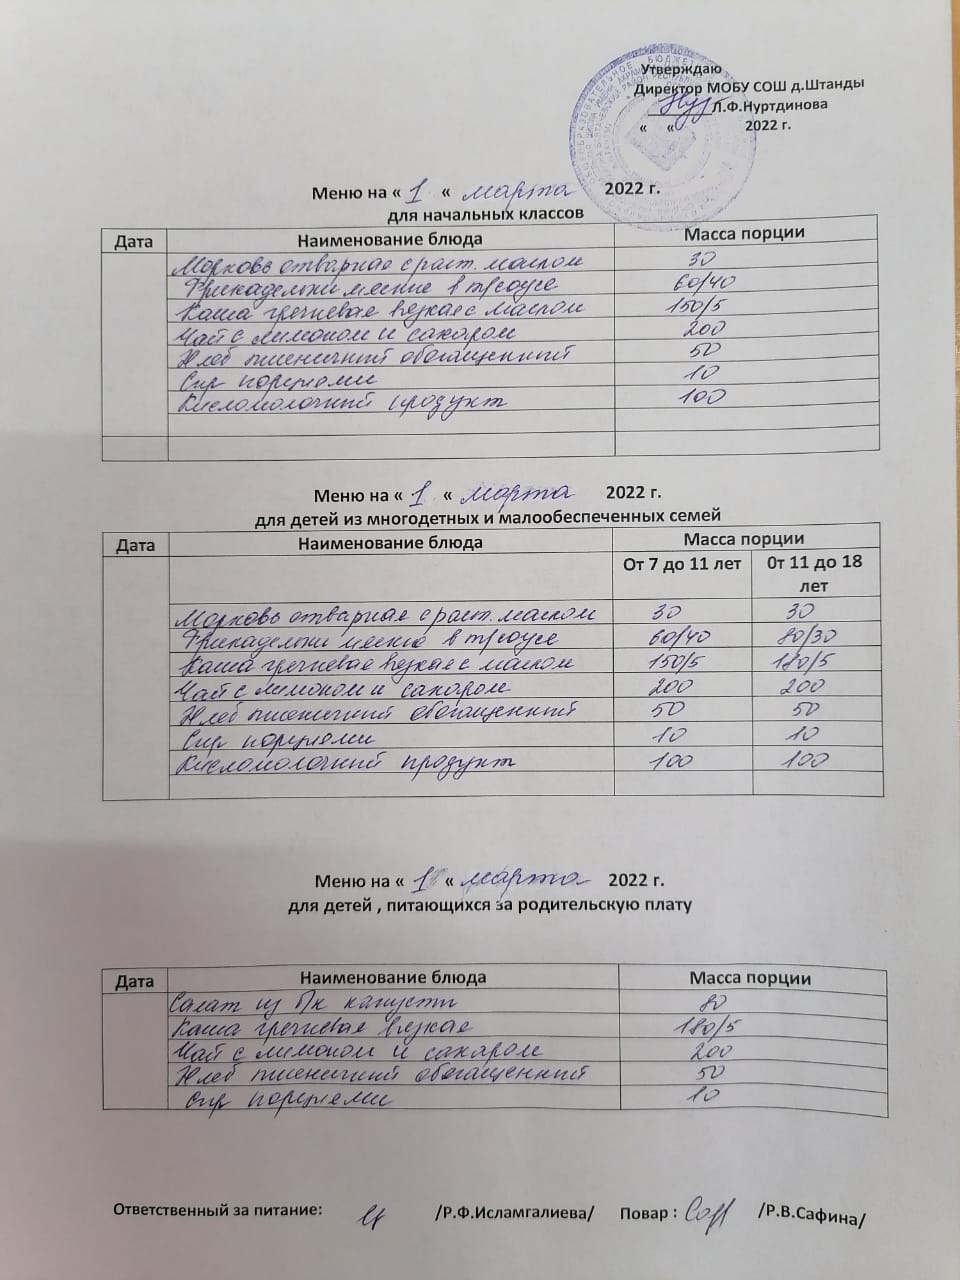 Утверждаю
Директор МОБУ СОШ д.Штанды
Л.Ф.Нуртдинова
« « 2022 г.
Меню на « 1 « марта 2022 г.
для начальных классов
Дата Наименование блюда Масса порции
Морковь отварная с раст. маслом 30
Фрикадельки мясные в т/соусе 60/40
Каша гречневая вязкая с маслом 150/5
Чай с лимоном и сахаром 200
Хлеб пшеничный обогащенный 50
Сыр порциями 10
Кисломолочный продукт 100
Меню на « 1 « марта 2022 г.
для детей из многодетных и малообеспеченных семей
Дата Наименование блюда Масса порции
От 7 до 11 лет 0т 11 до 18
лет
Морковь отварная с раст. маслом 30 30
Фрикадельки мясные в т/соусе 60/40 80/30
Каша гречневая вязкая с маслом 150/5 180/5
Чай с лимоном и сахаром 200 200
Хлеб пшеничный обогащенный 50 50
Сыр порциями 10 10
Кисломолочный продукт 100 100
Меню на « 1 « марта 2022 г.
для детей , питающихся за родительскую плату
Дата Наименование блюда Масса порции
Салат из б/к капусты 80
Каша гречневая вязкая 180/5
Чай с лимоном и сахаром 200
Хлеб пшеничный обогащенный 50
Сыр порциями 10
Ответственный за питание: /Р.Ф.Исламгалиева/ Повар : /Р.В.Сафина/